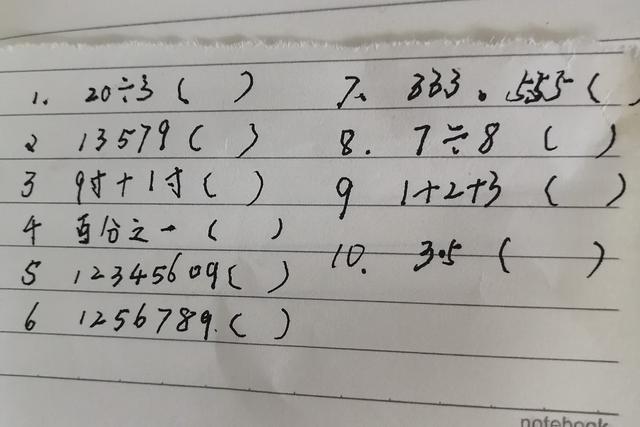 1. 20÷3 ( )
2 13579 ( )
3 9寸+1寸 ( )
4 百分之一 ( )
5 12345609 ( )
6 1256789. ( )
7、 333.555 ( )
8. 7÷8 ( )
9 1+2+3 ( )
10. 3.5 ( )
notebook